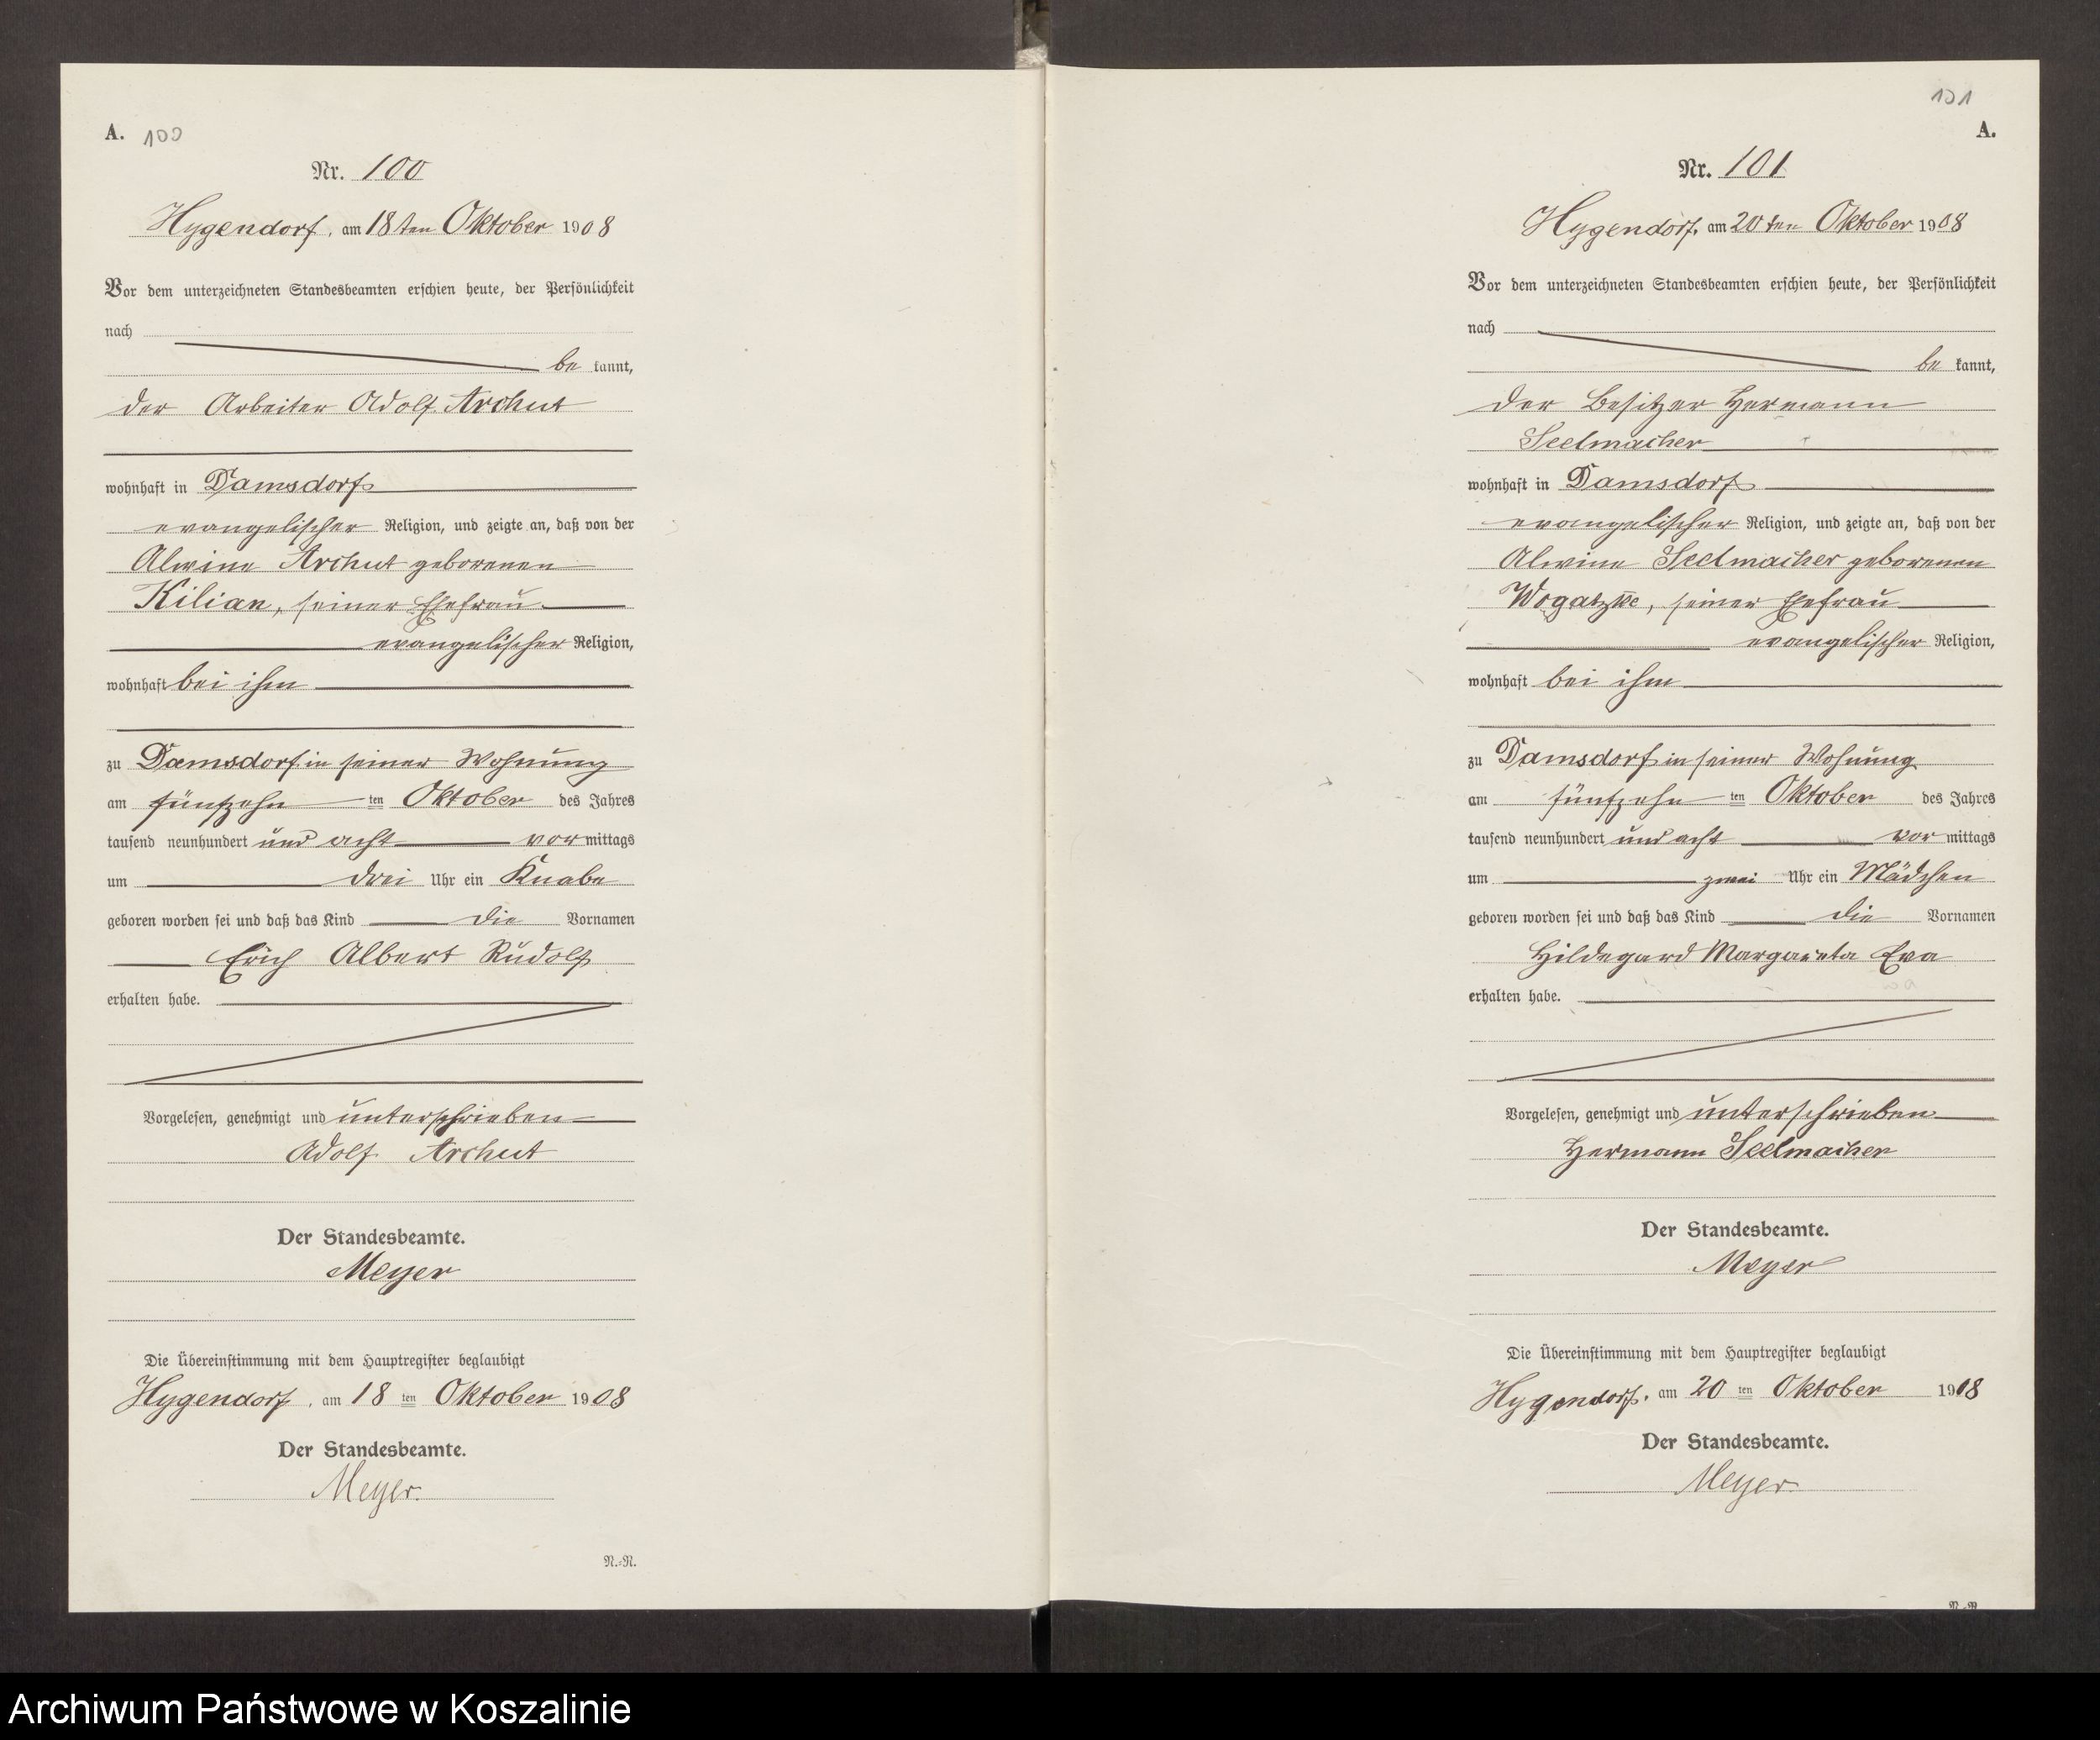 A. 100
Nr. 100
Hygendorf, am 18ten Oktober 1908
Vor dem unterzeichneten Standesbeamten erschien heute, der Persönlichkeit
nach
be kannt,
der Arbeiter Adolf Archut
wohnhaft in Damsdorf
evangelischer Religion, und zeigte an, daß von der
Alwine Archut geborenen
Kilian, seiner Ehefrau
evangelischer Religion,
wohnhaft bei ihm
zu Damsdorf in seiner Wohnung
am fünfzehn ten Oktober des Jahres
tausend neunhundert und acht vor mittags
um drei Uhr ein Knabe
geboren worden sei und daß das Kind die Vornamen
Erich Albert Rudolf
erhalten habe.
Vorgelesen, genehmigt und unterschrieben
Adolf Archut
Der Standesbeamte.
Meyer
Die Übereinstimmung mit dem Hauptregister beglaubigt
Hygendorf, am 18 ten Oktober 1908
Der Standesbeamte.
Meyer.
N.-N.
101
A.
Nr. 101
Hygendorf, am 20ten Oktober 1908
Vor dem unterzeichneten Standesbeamten erschien heute, der Persönlichkeit
nach
be kannt,
der Besitzer Hermann
Seelmacher
wohnhaft in Damsdorf
evangelischer Religion, und zeigte an, daß von der
Alwine Seelmacher geborenen
Wogatzke, seiner Ehefrau
evangelischer Religion,
wohnhaft bei ihm
zu Damsdorf in seiner Wohnung
am fünfzehn ten Oktober des Jahres
tausend neunhundert und acht vor mittags
um zwei Uhr ein Mädchen
geboren worden sei und daß das Kind die Vornamen
Hildegard Margareta Eva
erhalten habe.
Vorgelesen, genehmigt und unterschrieben
Hermann Seelmacher
Der Standesbeamte.
Meyer
Die Übereinstimmung mit dem Hauptregister beglaubigt
Hygendorf, am 20 ten Oktober 1908
Der Standesbeamte.
Meyer.
N.-N.
Archiwum Państwowe w Koszalinie